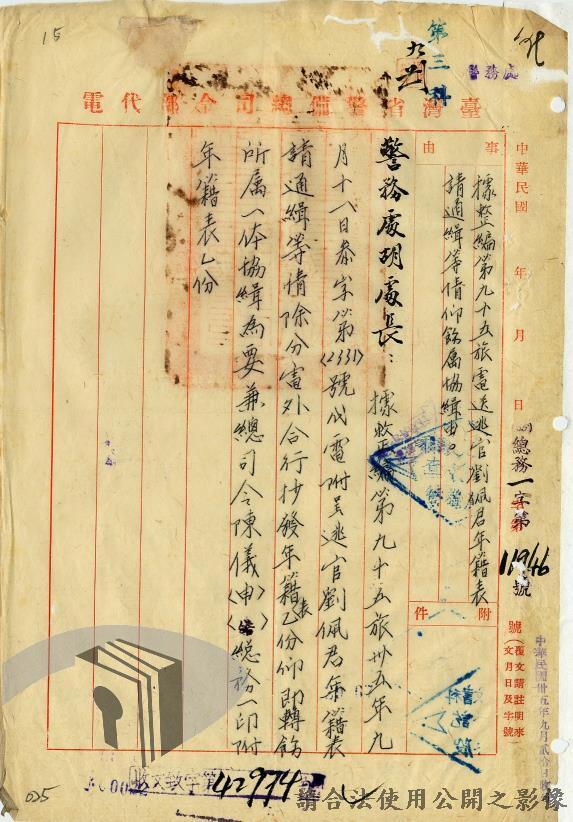 15
第三科
警務處
臺灣省警備總司令部代電
中華民國 年 月 日
總務一字第11946號
事由
據整編第九十五旅電送逃官劉佩君年籍表
請通緝等情仰飭屬協緝由。
附件
號(覆文請註明來文月日及字號)
中華民國卅五年九月貳拾日收
警務處胡處長：據整編第九十五旅卅五年九
月十八日泰字第(2331)號代電附呈逃官劉佩君年籍表
請通緝等情除分電外合行抄發年籍表乙份仰即轉飭
所属一体協緝為要兼總司令陳儀(申)總務一印附
年籍表乙份
收文教字第42974
025
請合法使用公開之影像